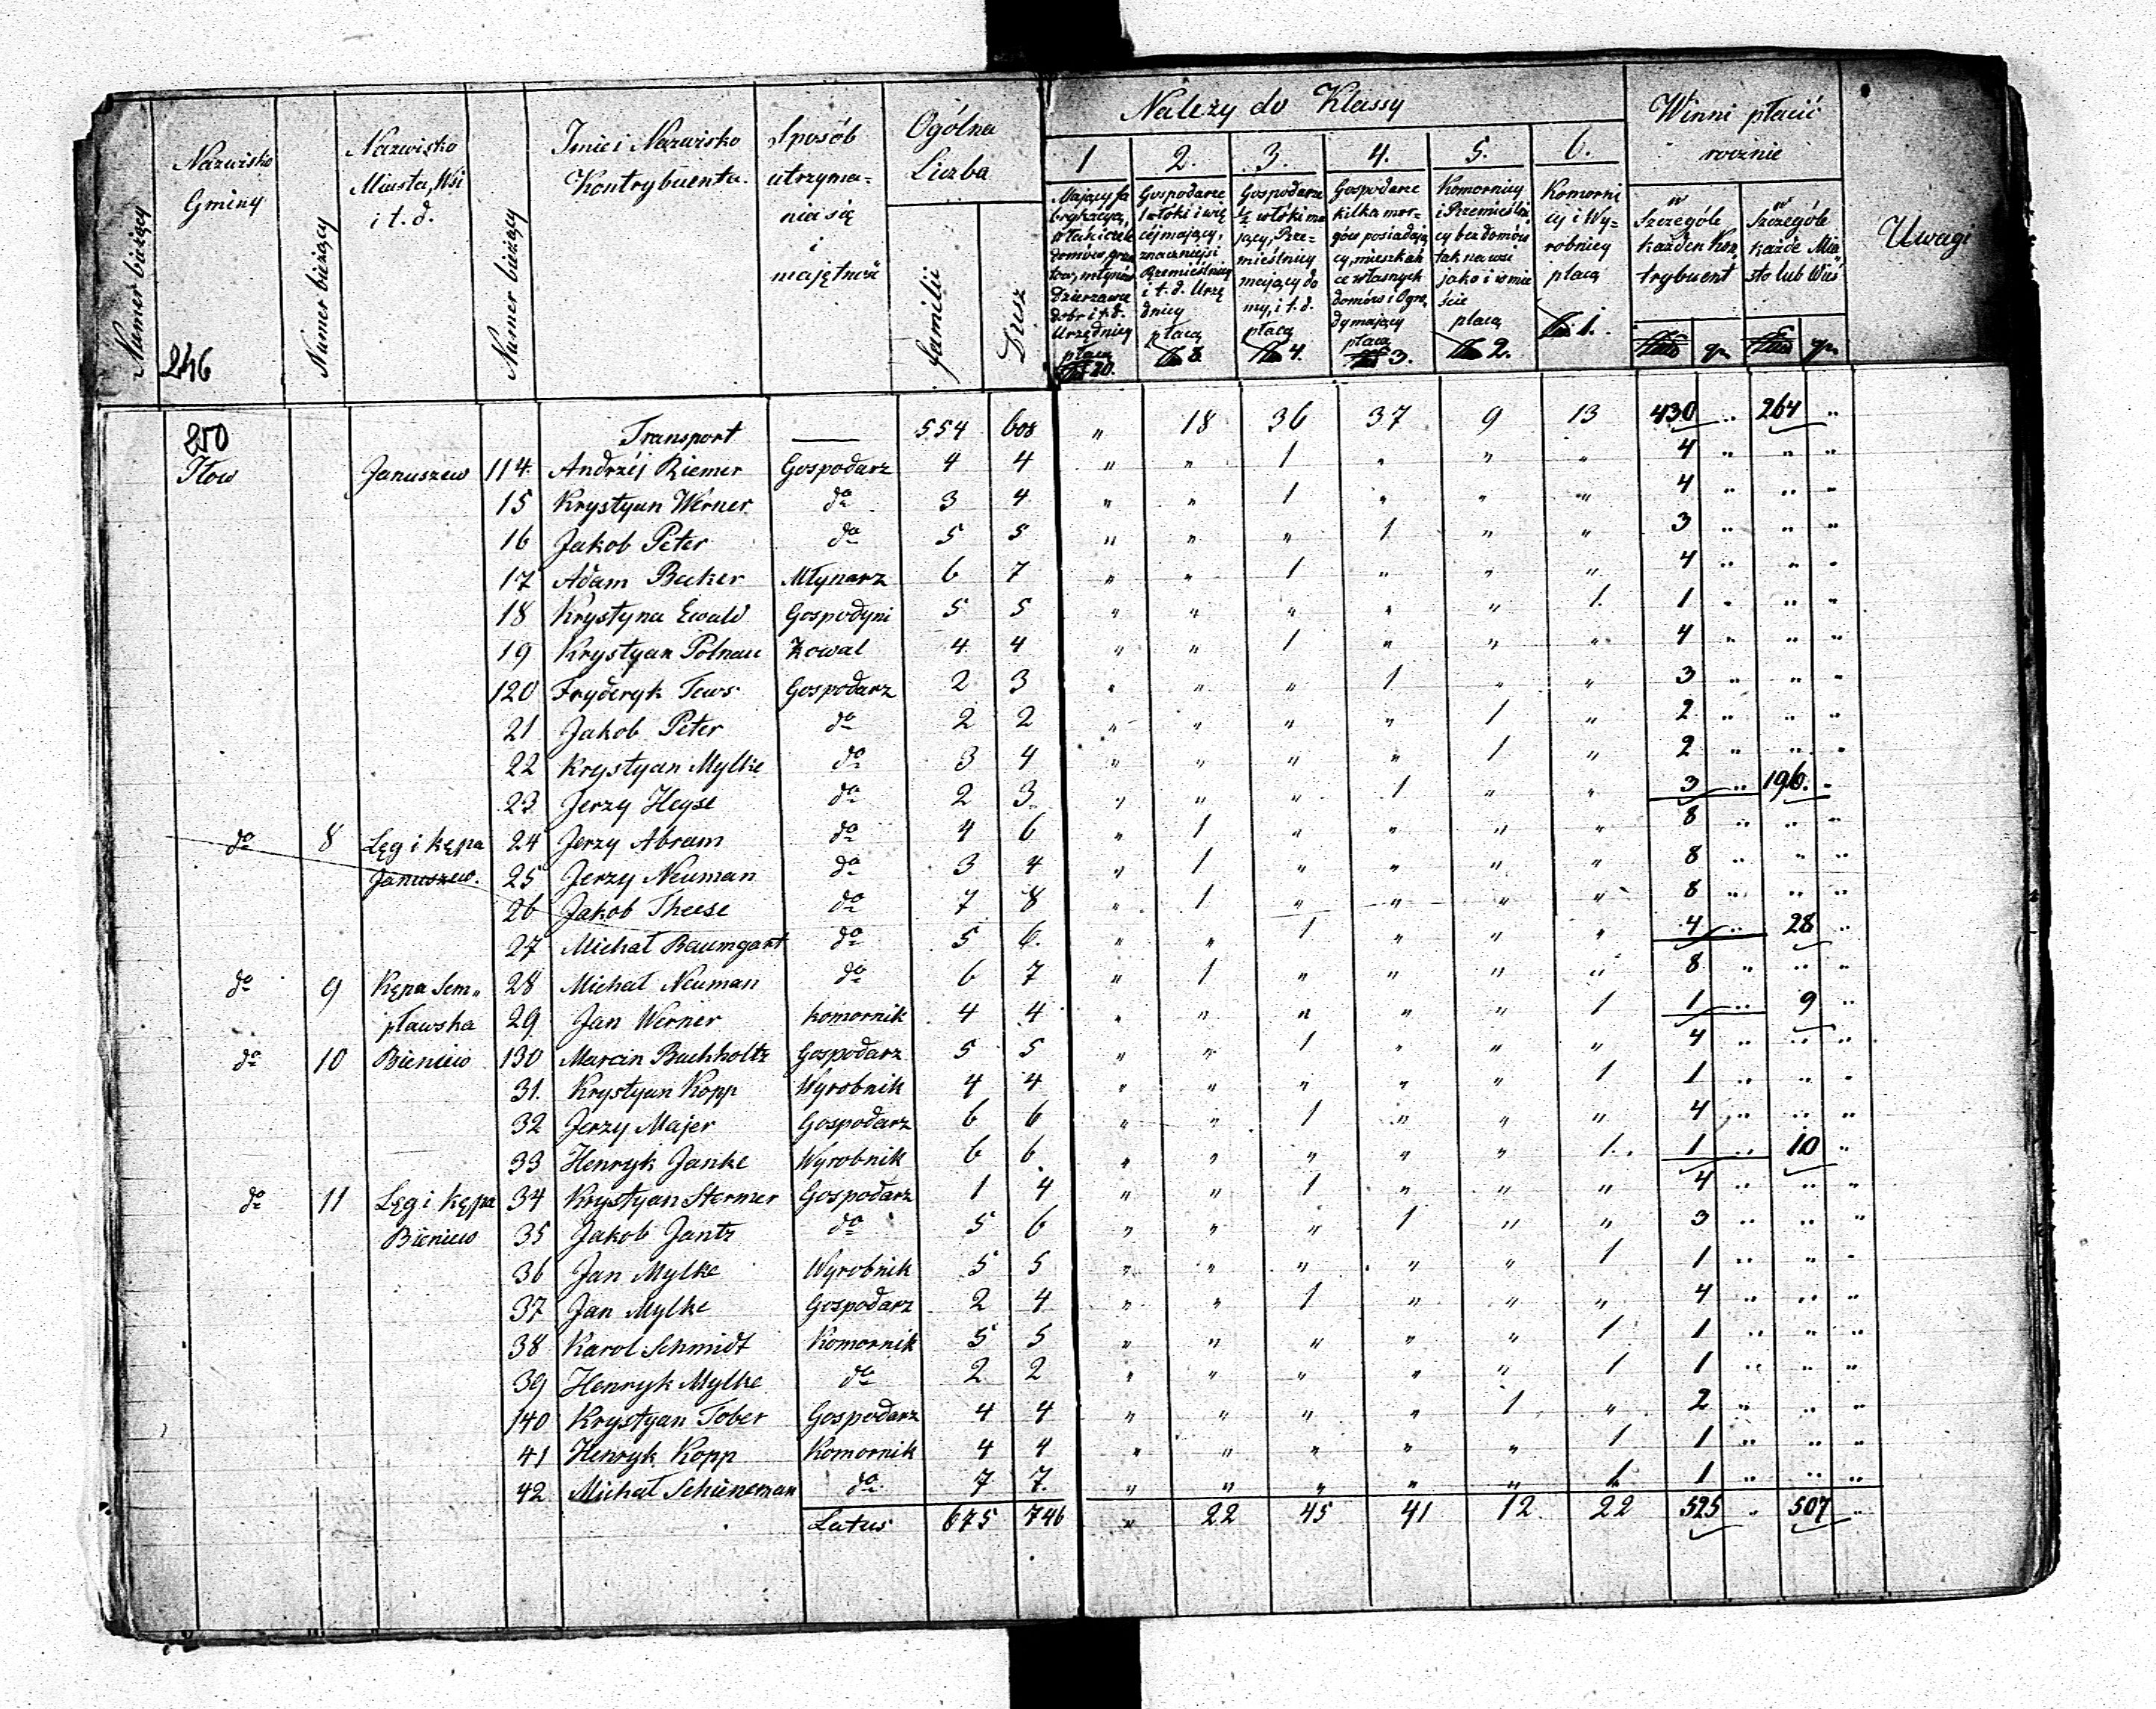 Numer bieżący
Nazwisko Gminy
246
Numer bieżący
Nazwisko Miasta, Wsi i t. d.
Numer bieżący
Imie i Nazwisko Kontrybuenta.
Sposób utrzymania się i majętność
Ogólna Liczba
familii
Dusz
Należy do Klassy
1 2. 3. 4. 5. 6.
Gospodarze 1 włóki i więcej mający, znaczniejsi Rzemieślnicy i t. d. Urzędnicy płacą 8.
Gospodarze ½ włóki mający, Rzemieślnicy mający domy, i t. d. płacą 4.
Gospodarze kilka morgów posiadający, mieszkańce własnych domów i Ogrody mający płacą 3.
Komornicy i Rzemieślnicy bez domów tak na wsi jako i w mieście płacą 2.
Komornicy i Wyrobnicy płacą 1.
Winni płacić rocznie
w Szczególe każden Kontrybuent
w Szczególe każde Miasto lub Wieś
gr.
gr.
Uwagi
250
Transport — 554 608 " 18 36 37 9 13 430 .. 264 ..
Iłow Januszew 114. Andrzéj Riemer Gospodarz 4 4 " " 1 " " " 4 .. " ..
15 Krystyan Werner do 3 4 " " 1 " " " 4 .. .. ..
16 Jakob Peter do 5 5 " " " 1 " " 3 .. .. ..
17 Adam Becker Młynarz 6 7 " " 1 " " " 4 .. .. ..
18 Krystyna Ewald Gospodyni 5 5 " " " " " 1. 1 .. .. ..
19 Krystyan Polnau Kowal 4 4 " " 1 " " " 4 .. .. ..
120 Fryderyk Tews Gospodarz 2 3 " " " 1 " " 3 .. .. ..
21 Jakob Peter do 2 2 " " " " 1 " 2 .. .. ..
22 Krystyan Mylke do 3 4 " " " " 1 " 2 .. .. ..
23 Jerzy Heyse do 2 3. " " " 1 " " 3 .. 196. ..
do 8 Lęg i kępa 24 Jerzy Abram do 4 6 " 1 " " " " 8 .. .. ..
Januszew. 25 Jerzy Neuman do 3 4 " 1 " " " " 8 .. .. ..
26 Jakob Theese do 7 8 " 1 " " " " 8 .. .. ..
27 Michał Baumgart do 5 6. " " 1 " " " 4 .. 28 ..
do 9 Kępa Sem„ 28 Michał Neuman do 6 7 " 1 " " " " 8 .. .. ..
pławska 29 Jan Werner Komornik 4 4 " " " " " 1 1 .. 9 ..
do 10 Bieniew 130 Marcin Buchholtz Gospodarz 5 5 " " 1 " " " 4 .. .. ..
31. Krystyan Kopp Wyrobnik 4 4 " " " " " 1 1 .. .. ..
32 Jerzy Majer Gospodarz 6 6 " " 1 " " " 4 .. .. ..
33 Henryk Janke Wyrobnik 6 6 " " " " " 1. 1 .. 10 ..
do 11 Lęg i kępa 34 Krystyan Stermer Gospodarz 1 4 " " 1 " " " 4 .. .. ..
Bieniew 35 Jakob Jantz do 5 6 " " " 1 " " 3 .. .. ..
36 Jan Mylke Wyrobnik 5 5 " " " " " 1 1 .. .. ..
37 Jan Mylke Gospodarz 2 4 " " 1 " " " 4 .. .. ..
38 Karol Schmidt Komornik 5 5 " " " " " 1 1 .. .. ..
39 Henryk Mylke do 2 2 " " " " " 1 1 .. .. ..
140 Krystyan Tober Gospodarz 4 4 " " " " 1 " 2 .. .. ..
41 Henryk Kopp Komornik 4 4 " " " " " 1 1 .. .. ..
42 Michał Schüneman do 7 7. " " " " " 1 1 .. .. ..
Latus 675 746 " 22 45 41 12 22 525 .. 507 ..